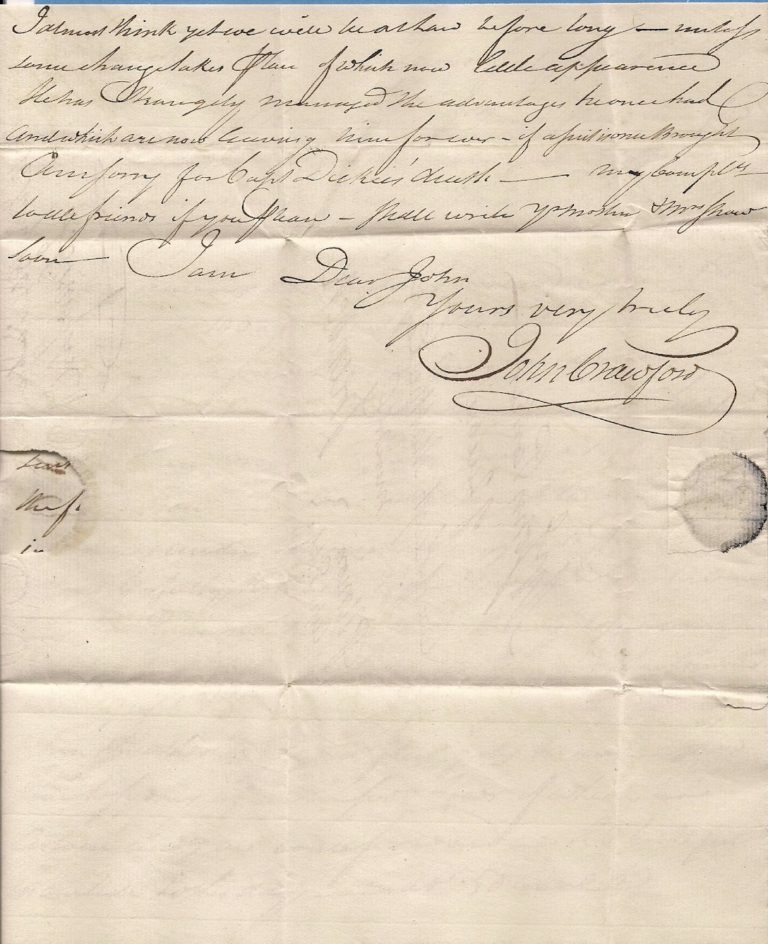 I almost think yet we will be at law before long — unless
some change takes place of which now little appearance
He has strangely managed the advantages he once had
and which are now leaving him for ever — if
Am sorry for Capt Dickie's death — my Complts
to all friends if you please — Shall write yr mother & Mrs Shaw
soon — I am Dear John
Yours very truly
John Crawford
the
in